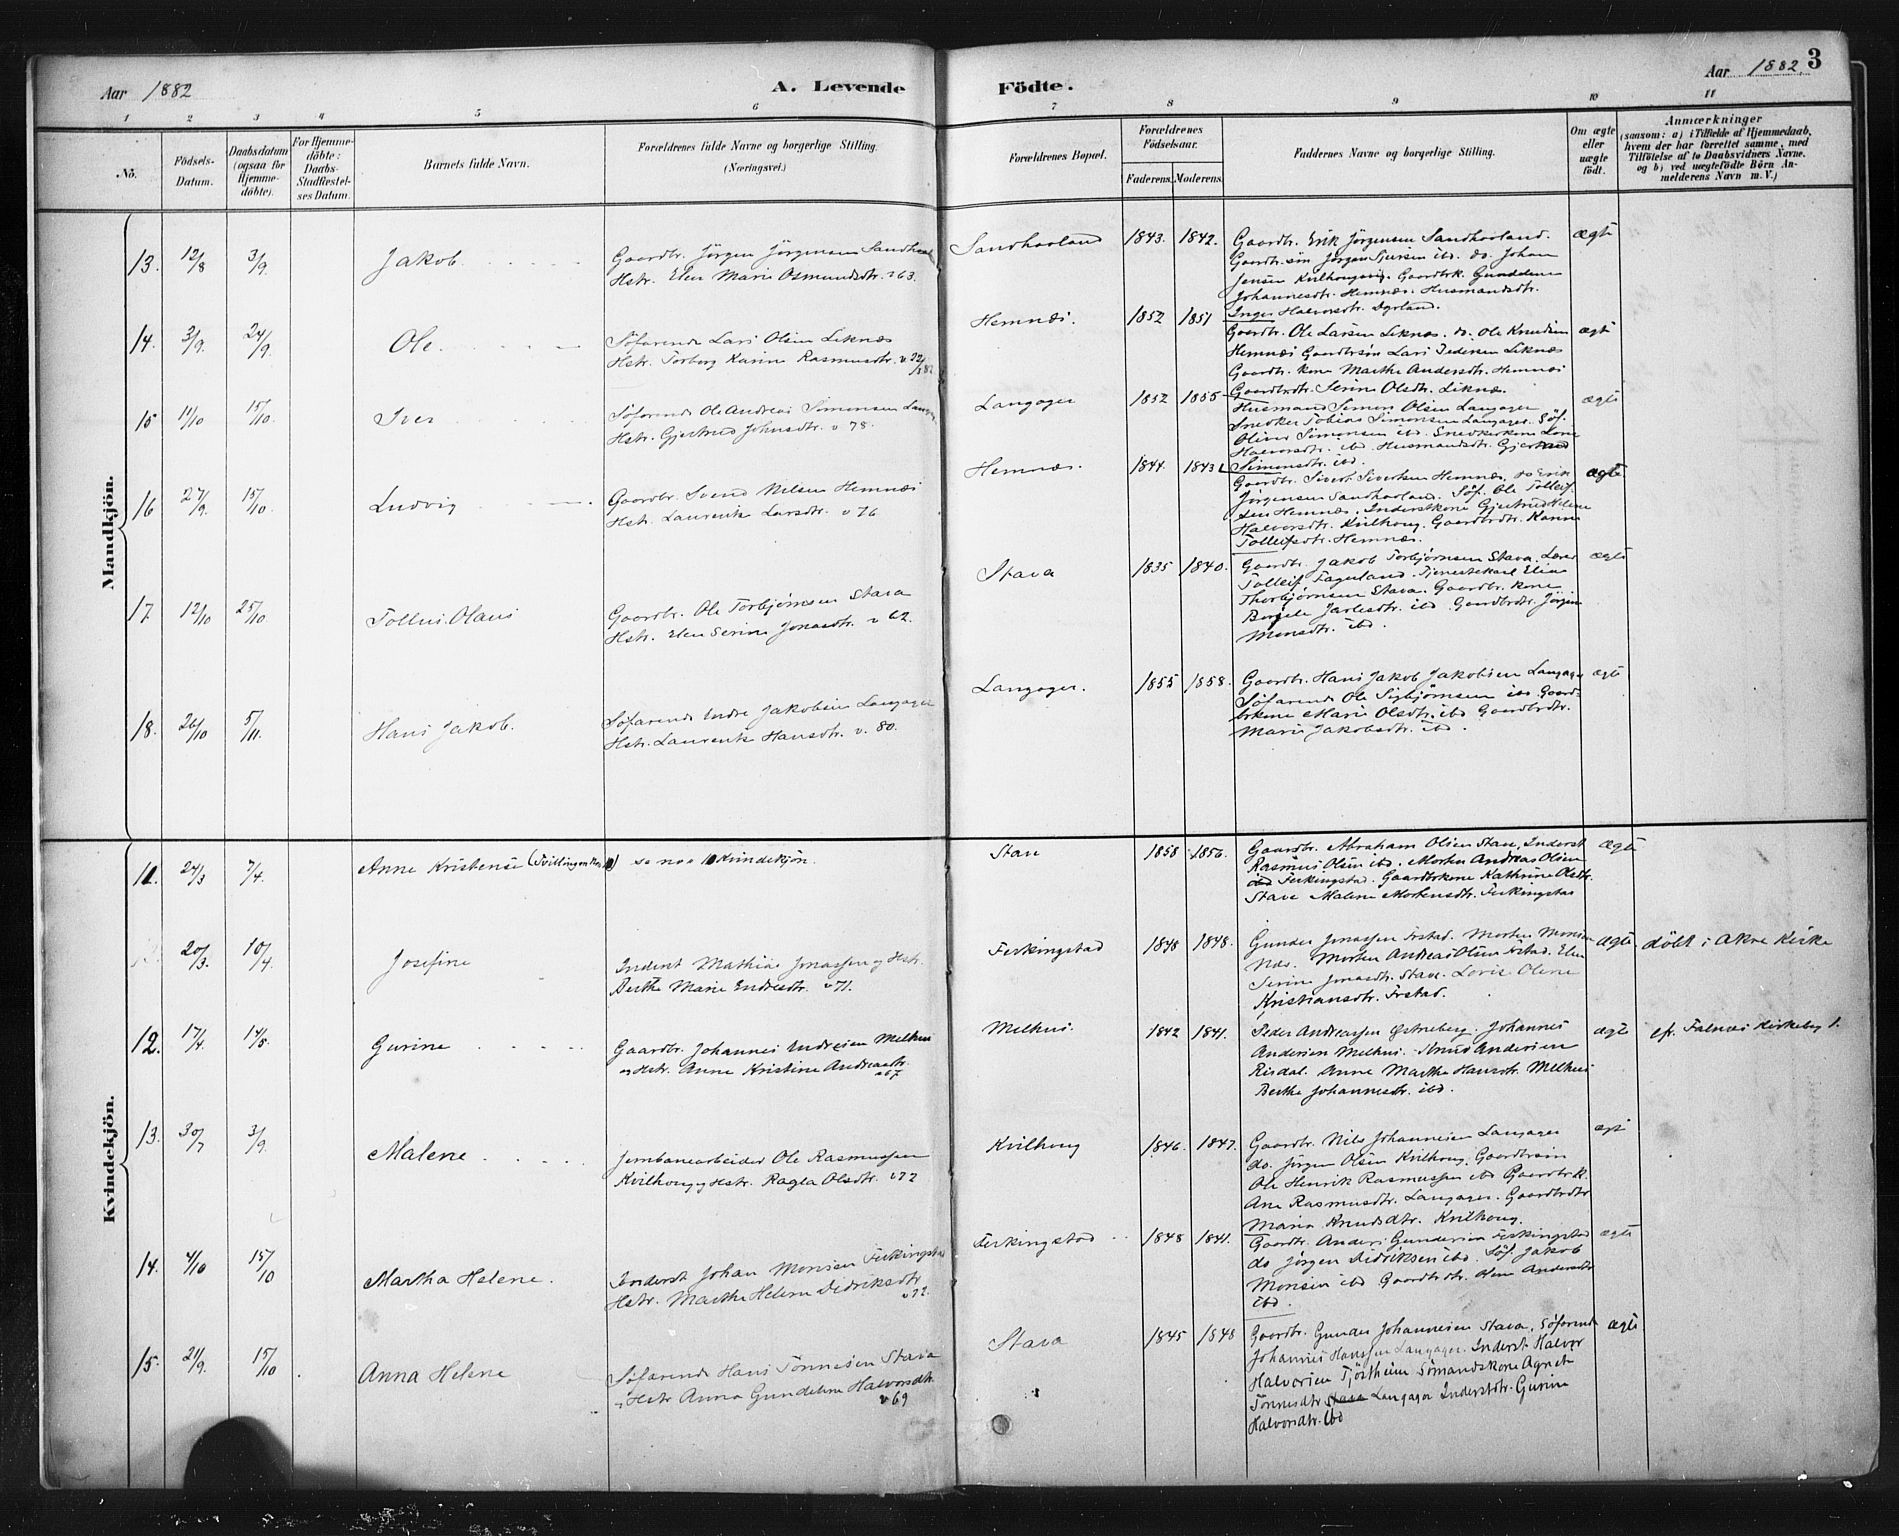 Aar 1882
A. Levende
Födte.
Aar 1882. 3
1 2 3 4 5 6 7 8 9 10 11
No.
Födsels-Datum.
Daabsdatum (ogsaa för Hjemme-döbte).
For Hjemme-döbte: Daabs-Stadfæstel-ses Datum.
Barnets fulde Navn.
Forældrenes fulde Navne og borgerlige Stilling. (Næringsvei.)
Forældrenes Bopæl.
Forældrenes Födselsaar.
Faderens. Moderens.
Faddernes Navne og borgerlige Stilling.
Om ægte eller uægte födt.
Anmærkninger
(saasom: a) i Tilfælde af Hjemmedaab,
hvem der har forrettet samme, med
Tilföielse af to Daabsvidners Navne,
og b) ved uægtefödte Börn An-
melderens Navn m. V.)
Mandkjön.
13. 12/8 3/9. Jakob.
Gaardbr. Jörgen Jörgensen Sandhaaland
Hstr. Elen Marie Osmundsdtr. v 63.
Sandhaaland 1843. 1842.
Gaardbr. Erik Jörgensen Sandhaaland.
Gaardbr.sön Jörgen Sjursen ibd. do. Johan
Jensen Kvilhoug. Gaardbrk. Gundelena
Johannesdtr. Hemnæs. Husmandsdtr.
Inger Halvorsdtr. Dyrland.
ægte
14. 3/9. 24/9. Ole.
Söfarende Lars Olsen Liknæs
Hstr. Torborg Karine Rasmusdtr. v 22/3 82
Hemnæs. 1852 1851
Gaardbr. Ole Larsen Liknæs. do. Ole Knudsen
Hemnæs Gaardbrsön Lars Pedersen Liknæs
Gaardbr. kone Marthe Andersdtr. Hemnæs
Gaardbrdtr. Serine Olsdtr. Liknæs.
ægte
15 11/10 15/10. Iver
Söfarende Ole Andreas Simonsen Langager
Hstr. Gjertrud Johnsdtr. v 78.
Langager 1852 1855
Husmand Simon Olsen Langager
Snedker Tobias Simonsen Langager. Söf.
Oliver Simonsen ibd. Snedkerkone Lene
Halvorsdtr. ibd Husmandsdtr. Gjertrud
Simonsdtr. ibd.
ægte
16 27/9. 15/10. Ludvig
Gaardbr. Svend Nilsen Hemnæs
Hstr. Laurentse Larsdtr. v 76
Hemnæs. 1844. 1843
Gaardbr. Sivert Sivertsen Hemnæs. do Erik
Jörgensen Sandhaaland. Söf. Ole Tolleif-
sen Hemnæs. Inderstkone Gjertrud Helene
Halvorsdtr. Kvilhoug. Gaardbrdtr. Karine
Tolleifsdtr. Hemnæs.
ægte
17. 12/10 25/10. Tollus Olaus
Gaardbr. Ole Torbjørnsen Stava
Hstr. Elen Serine Jonasdtr. v 62.
Stava 1835 1840.
Gaardbr. Jakob Torbjørnsen Stava. Lærer
Tolleif Fagerland. Tjenestekarl Elias
Thorbjørnsen Stava. Gaardbr. kone
Bergele Jarlesdtr. ibd. Gaardbrdtr. Jörgine
Monsdtr. ibd.
ægte
18. 26/10 5/11. Hans Jakob.
Söfarende Endre Jakobsen Langager
Hstr. Laurentse Hansdtr. v. 80.
Langager. 1855 1858.
Gaardbr. Hans Jakob Jakobsen Langager
Söfarende Ole Sigbjørnsen ibd Gaard-
brkone Marie Olsdtr. ibd Gaardbrdtr.
Marie Jakobsdtr. ibd.
ægte
Kvindekjön.
11. 24/3 7/4. Anne Kristense (Tvilling se No 10) se no 10 Kvindekjön.
Stave 1858 1856.
Gaardbr. Abraham Olsen Stave, Inderst
Rasmus Olsen ibd. Morten Andreas Olsen
Ferkingstad. Gaardbrkone Kathrine Olsdtr.
Stave Malene Mortensdtr. Ferkingstad
ægte
20/3. 10/4. Josefine
Inderst Mathias Jonassen og Hstr.
Berthe Marie Endresdtr. v 71.
Ferkingstad 1848 1848.
Gunder Jonassen Frstad. Morten Monsen
Næs. Morten Andreas Olsen Frstad. Elen
Serine Jonasdtr. Stave. Lovise Olene
Kristiansdtr. Frstad.
ægte döbt i Akre Kirke
12. 17/4. 14/5. Gurine
Gaardbr. Johannes Endresen Melhus
og Hstr. Anne Kristine Andreasdtr.
v 67
Melhus. 1842 1841.
Peder Andreassen Østreberg. Johannes
Andersen Melhus. Knud Andersen
Risdal. Anne Marthe Hansdtr. Melhus
Berthe Johannesdtr. ibd.
ægte cfr. Falnæs Kirkebog 1.
13. 30/7 3/9. Malene
Jernbanearbeider Ole Rasmussen
Kvilhoug og Hstr. Ragla Olsdtr. v 72
Kvilhoug 1846. 1847.
Gaardbr. Nils Johannesen Langager
do. Jörgen Olsen Kvilhoug. Gaardbrsön
Ole Henrik Rasmussen ibd Gaardbr.k.
Ane Rasmusdtr. Langager. Gaardbrdtr
Maria Knudsdtr. Kvilhoug.
ægte
14. 4/10 15/10 Martha Helene.
Inderst Johan Monsen Ferkingstad
Hstr. Marthe Helene Didriksdtr
v 72.
Ferkingstad 1848 1841.
Gaardbr. Anders Gundersen Ferkingstad
do Jörgen Didriksen ibd. Söf. Jakob
Monsen ibd Gaardbrdtr. Olene Andersdtr
ibd.
ægte
15. 21/9. 15/10 Anna Helene
Söfarende Hans Tönnesen Stava
og Hstr Anna Gundeline Halvorsdtr.
v 69
Stava 1845 1848
Gaardbr. Gunder Johannesen Stava. Söfarende
Johannes Hanssen Langager. Inderst Halvor
Halvorsen Tjöstheim Sömandskone Agnete
Tönnesdtr. Stava Langager Inderstdtr. Gurine
Halvorsdtr. Ibd
ægte